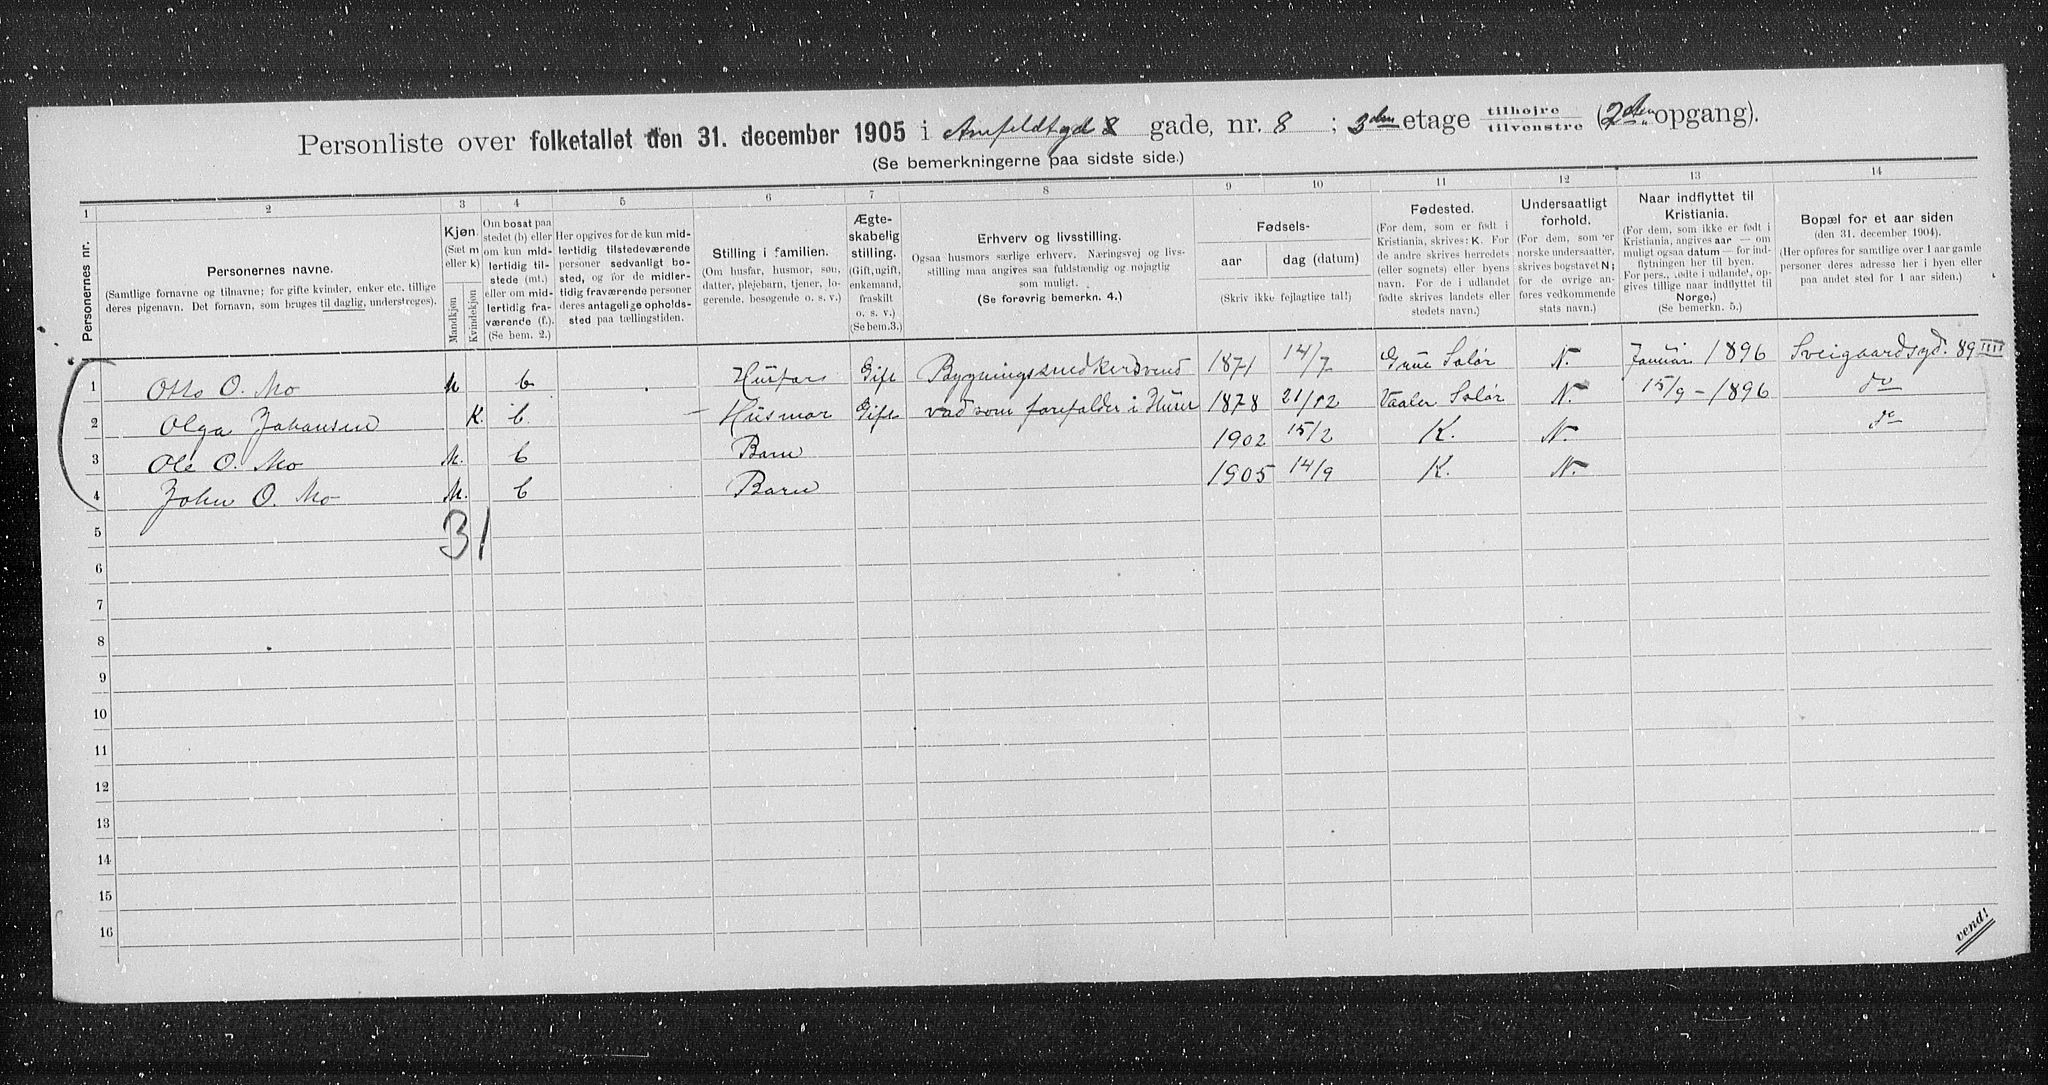 Personliste over folketallet den 31. december 1905 i Arnfeldtsgd 8 gade, nr. 8 ; 3den etage tilhøjre tilvenstre (2den opgang).
(Se bemerkningerne paa sidste side.)
1 2 3 4 5 6 7 8 9 10 11 12 13 14
Personernes nr.
Personernes navne.
(Samtlige fornavne og tilnavne; for gifte kvinder, enker etc. tillige
deres pigenavn. Det fornavn, som bruges til daglig, understreges).
Kjøn.
(Sæt m
eller k)
Mandkjøn
Kvindekjøn
Om bosat paa
stedet (b) eller
om kun mid-
lertidig til-
stede (mt.)
eller om mid-
lertidig fra-
værende (f.).
(Se bem. 2.)
Her opgives for de kun mid-
lertidig tilstedeværende
personer sedvanlig bo-
sted, og for de midler-
tidig fraværende personer
deres antagelige opholds-
sted paa tællingstiden.
Stilling i familien.
(Om husfar, husmor, søn,
datter, plejebarn, tjener, lo-
gerende, besøgende o. s. v.)
Ægte-
skabelig
stilling.
(Gift, ugift,
enkemand,
fraskilt
o. s. v.)
(Se bem.3.)
Erhverv og livsstilling.
Ogsaa husmors særlige erhverv. Næringsvej og livs-
stilling maa angives saa fuldstændig og nøjagtig
som muligt.
(Se forøvrig bemerkn. 4.)
Fødsels-
aar dag (datum)
(Skriv ikke fejlagtige tal!)
Fødested.
(For dem, som er født i
Kristiania, skrives: K. For
de andre skrives herredets
(eller sognets) eller byens
navn. For de i udlandet
fødte skrives landets eller
stedets navn.)
Undersaatligt
forhold.
(For dem, som er
norske undersaatter,
skrives bogstavet N;
for de øvrige an-
føres vedkommende
stats navn.)
Naar indflyttet til
Kristiania.
(For dem, som ikke er født i
Kristiania, angives aar — om
muligt ogsaa datum — for ind-
flytningen her til byen.
For pers., fødte i udlandet, op-
gives tillige naar indflyttet til
Norge.)
(Se bemerkn. 5.)
Bopæl for et aar siden
(den 31. december 1904).
(Her opføres for samtlige over 1 aar gamle
personer deres adresse her i byen eller
paa andet sted for 1 aar siden.)
1 Otto O. Mo M b Husfar Gift Bygningssnedkersvend 1871 14/7 Grue Solør N. Januar 1896 Sveigaardsgd. 89 IIII
2 Olga Johansen K. b. Husmor Gift vad som forefalder i Huset 1878 21/12 Vaaler Solør N. 15/9 - 1896 do
3 Ole O. Mo M. b Barn 1902 15/2 K. N. do
4 John O. Mo M. b Barn 1905 14/9 K. N.
5
3 1
6
7
8
9
10
11
12
13
14
15
16
vend!